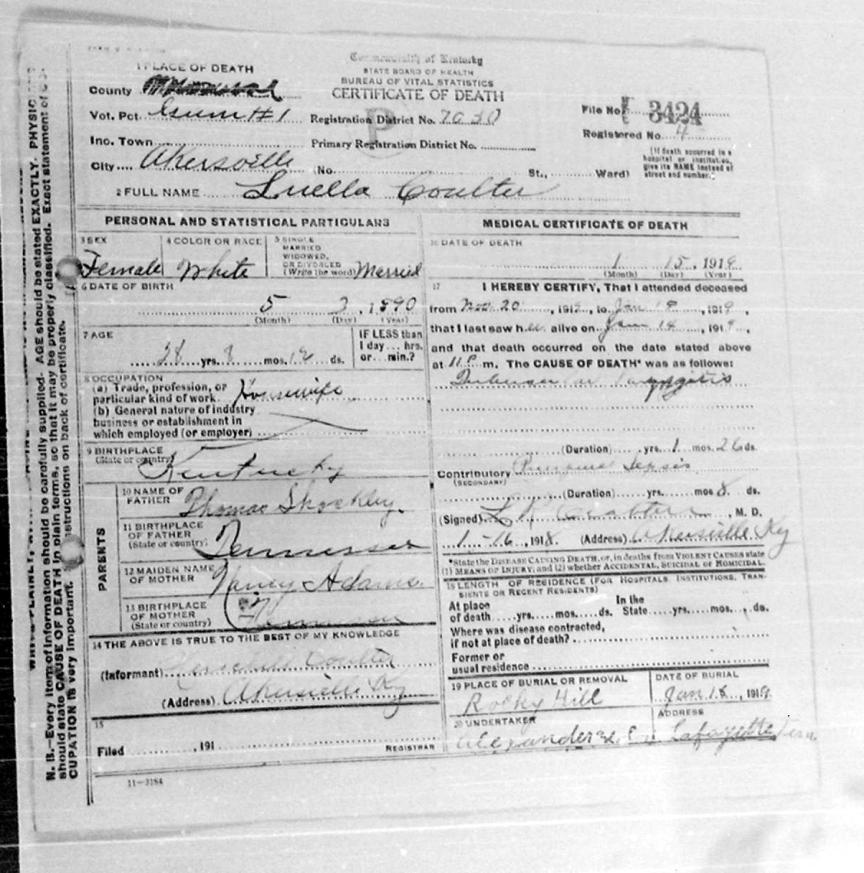 Commonwealth of Kentucky
STATE BOARD OF HEALTH
BUREAU OF VITAL STATISTICS
CERTIFICATE OF DEATH
1 PLACE OF DEATH
County
Vot. Pct. Gum #1 Registration District No. 7030
File No. 3424
Registered No. 4
Inc. Town Primary Registration District No.
City Akersville (No. St., Ward)
(If death occurred in a hospital or institution, give its NAME instead of street and number.)
2 FULL NAME Luella Coulter
PERSONAL AND STATISTICAL PARTICULARS
3 SEX Female
4 COLOR OR RACE White
5 SINGLE MARRIED WIDOWED, OR DIVORCED (Write the word) Married
6 DATE OF BIRTH
5 3, 1890
(Month) (Day) (Year)
7 AGE
28 yrs. 8 mos. 12 ds.
IF LESS than 1 day... hrs. or... min.?
8 OCCUPATION
(a) Trade, profession, or particular kind of work Housewife
(b) General nature of industry business or establishment in which employed (or employer)
9 BIRTHPLACE (State or country) Kentucky
PARENTS
10 NAME OF FATHER Thomas Shockley
11 BIRTHPLACE OF FATHER (State or country) Tennessee
12 MAIDEN NAME OF MOTHER Nancy Adams
13 BIRTHPLACE OF MOTHER (State or country) Tennessee
14 THE ABOVE IS TRUE TO THE BEST OF MY KNOWLEDGE
(Informant) Coulter
(Address) Akersville Ky
15
Filed , 191 REGISTRAR
11-3184
MEDICAL CERTIFICATE OF DEATH
16 DATE OF DEATH
1 15, 1919
(Month) (Day) (Year)
17 I HEREBY CERTIFY, That I attended deceased
from Nov. 20, 191 to Jan, 1919,
that I last saw her alive on Jan 14, 1919,
and that death occurred on the date stated above
at 11 P m. The CAUSE OF DEATH* was as follows:
(Duration) yrs. 1 mos. 26 ds.
Contributory Sepsis
(SECONDARY)
(Duration) yrs. mos. 8 ds.
(Signed) , M. D.
1-16, 1918. (Address) Akersville Ky
*State the DISEASE CAUSING DEATH, or, in deaths from VIOLENT CAUSES state
(1) MEANS OF INJURY; and (2) whether ACCIDENTAL, SUICIDAL or HOMICIDAL.
18 LENGTH OF RESIDENCE (FOR HOSPITALS, INSTITUTIONS, TRANSIENTS OR RECENT RESIDENTS)
At place of death yrs. mos. ds. In the State yrs. mos. ds.
Where was disease contracted, if not at place of death?
Former or usual residence
19 PLACE OF BURIAL OR REMOVAL Rocky Hill
DATE OF BURIAL Jan 18, 1919
20 UNDERTAKER Alexander
ADDRESS Lafayette Tenn.
N. B.—Every item of information should be carefully supplied. AGE should be stated EXACTLY. PHYSIC
should state CAUSE OF DEATH in plain terms, so that it may be properly classified. Exact statement of
CUPATION is very important. instructions on back of certificate.